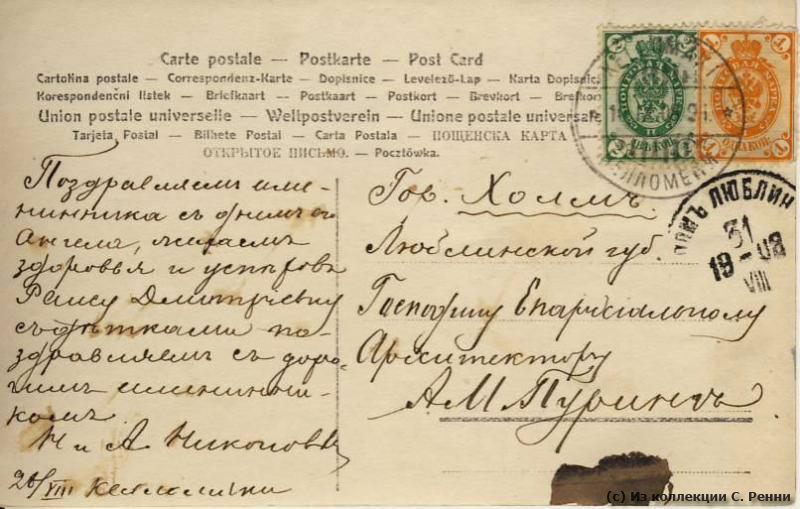 Carte postale — Postkarte — Post Card
Cartolina postale — Correspondenz-Karte — Dopisnice — Levelező-Lap — Karta Dopisnic
Korespondenční lístek — Briefkaart — Postkaart — Postkort — Brevkort — Brefkort
Union postale universelle — Weltpostverein — Unione postale universale
Tarjeta Postal — Bilhete Postal — Carta Postala — ПОЩЕНСКА КАРТА
ОТКРЫТОЕ ПИСЬМО. — Pocztówka.
Поздравляемъ име-
нинника съ днемъ
Ангела, желаемъ
здоровья и успѣховъ
Раису Дмитріевну
съ дѣтками по-
здравляемъ съ доро-
гимъ именинни-
комъ
Н и А Никоновы
26/VIII Келломяки
Гор. Холмъ
Люблинской губ.
Господину Епархіальному
Архитектору
А М Пурингъ
ПОЧТОВАЯ МАРКА
2 ДВѢ КОП 2
1 ОДНА КОП 1
КЕЛЛОМЕКИ
ХОЛМЪ ЛЮБЛИН
31
19-08
VIII
(c) Из коллекции С. Ренни